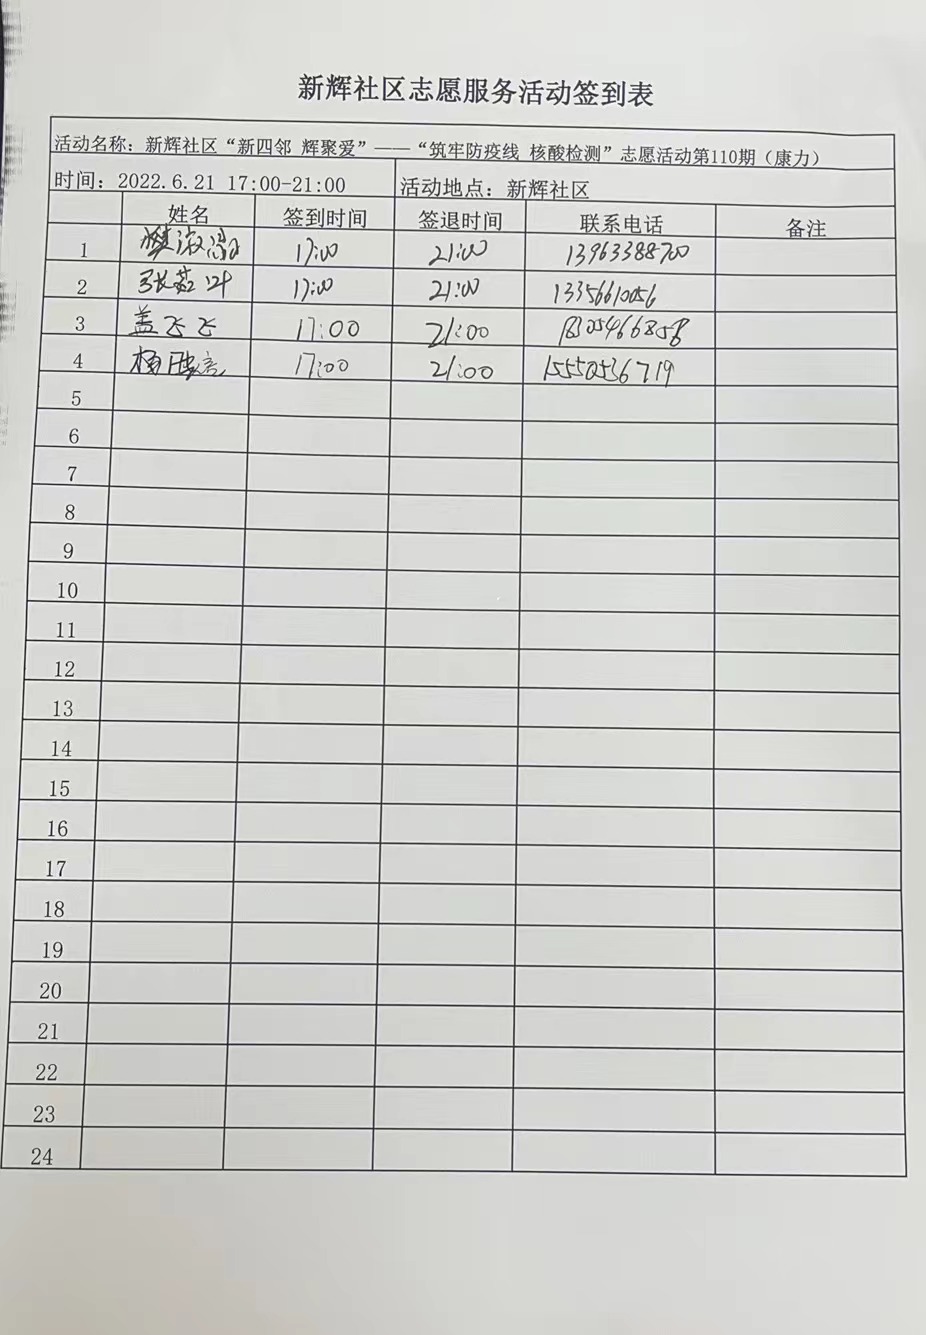 新辉社区志愿服务活动签到表
活动名称：新辉社区“新四邻 辉聚爱”——“筑牢防疫线 核酸检测”志愿活动第110期（康力）
时间：2022.6.21 17:00-21:00 活动地点：新辉社区
姓名 签到时间 签退时间 联系电话 备注
1 樊 17:00 21:00 13963388700
2 张 叶 17:00 21:00 13356610056
3 盖飞飞 17:00 21:00 18305466858
4 杨 17:00 21:00 15550536719
5
6
7
8
9
10
11
12
13
14
15
16
17
18
19
20
21
22
23
24